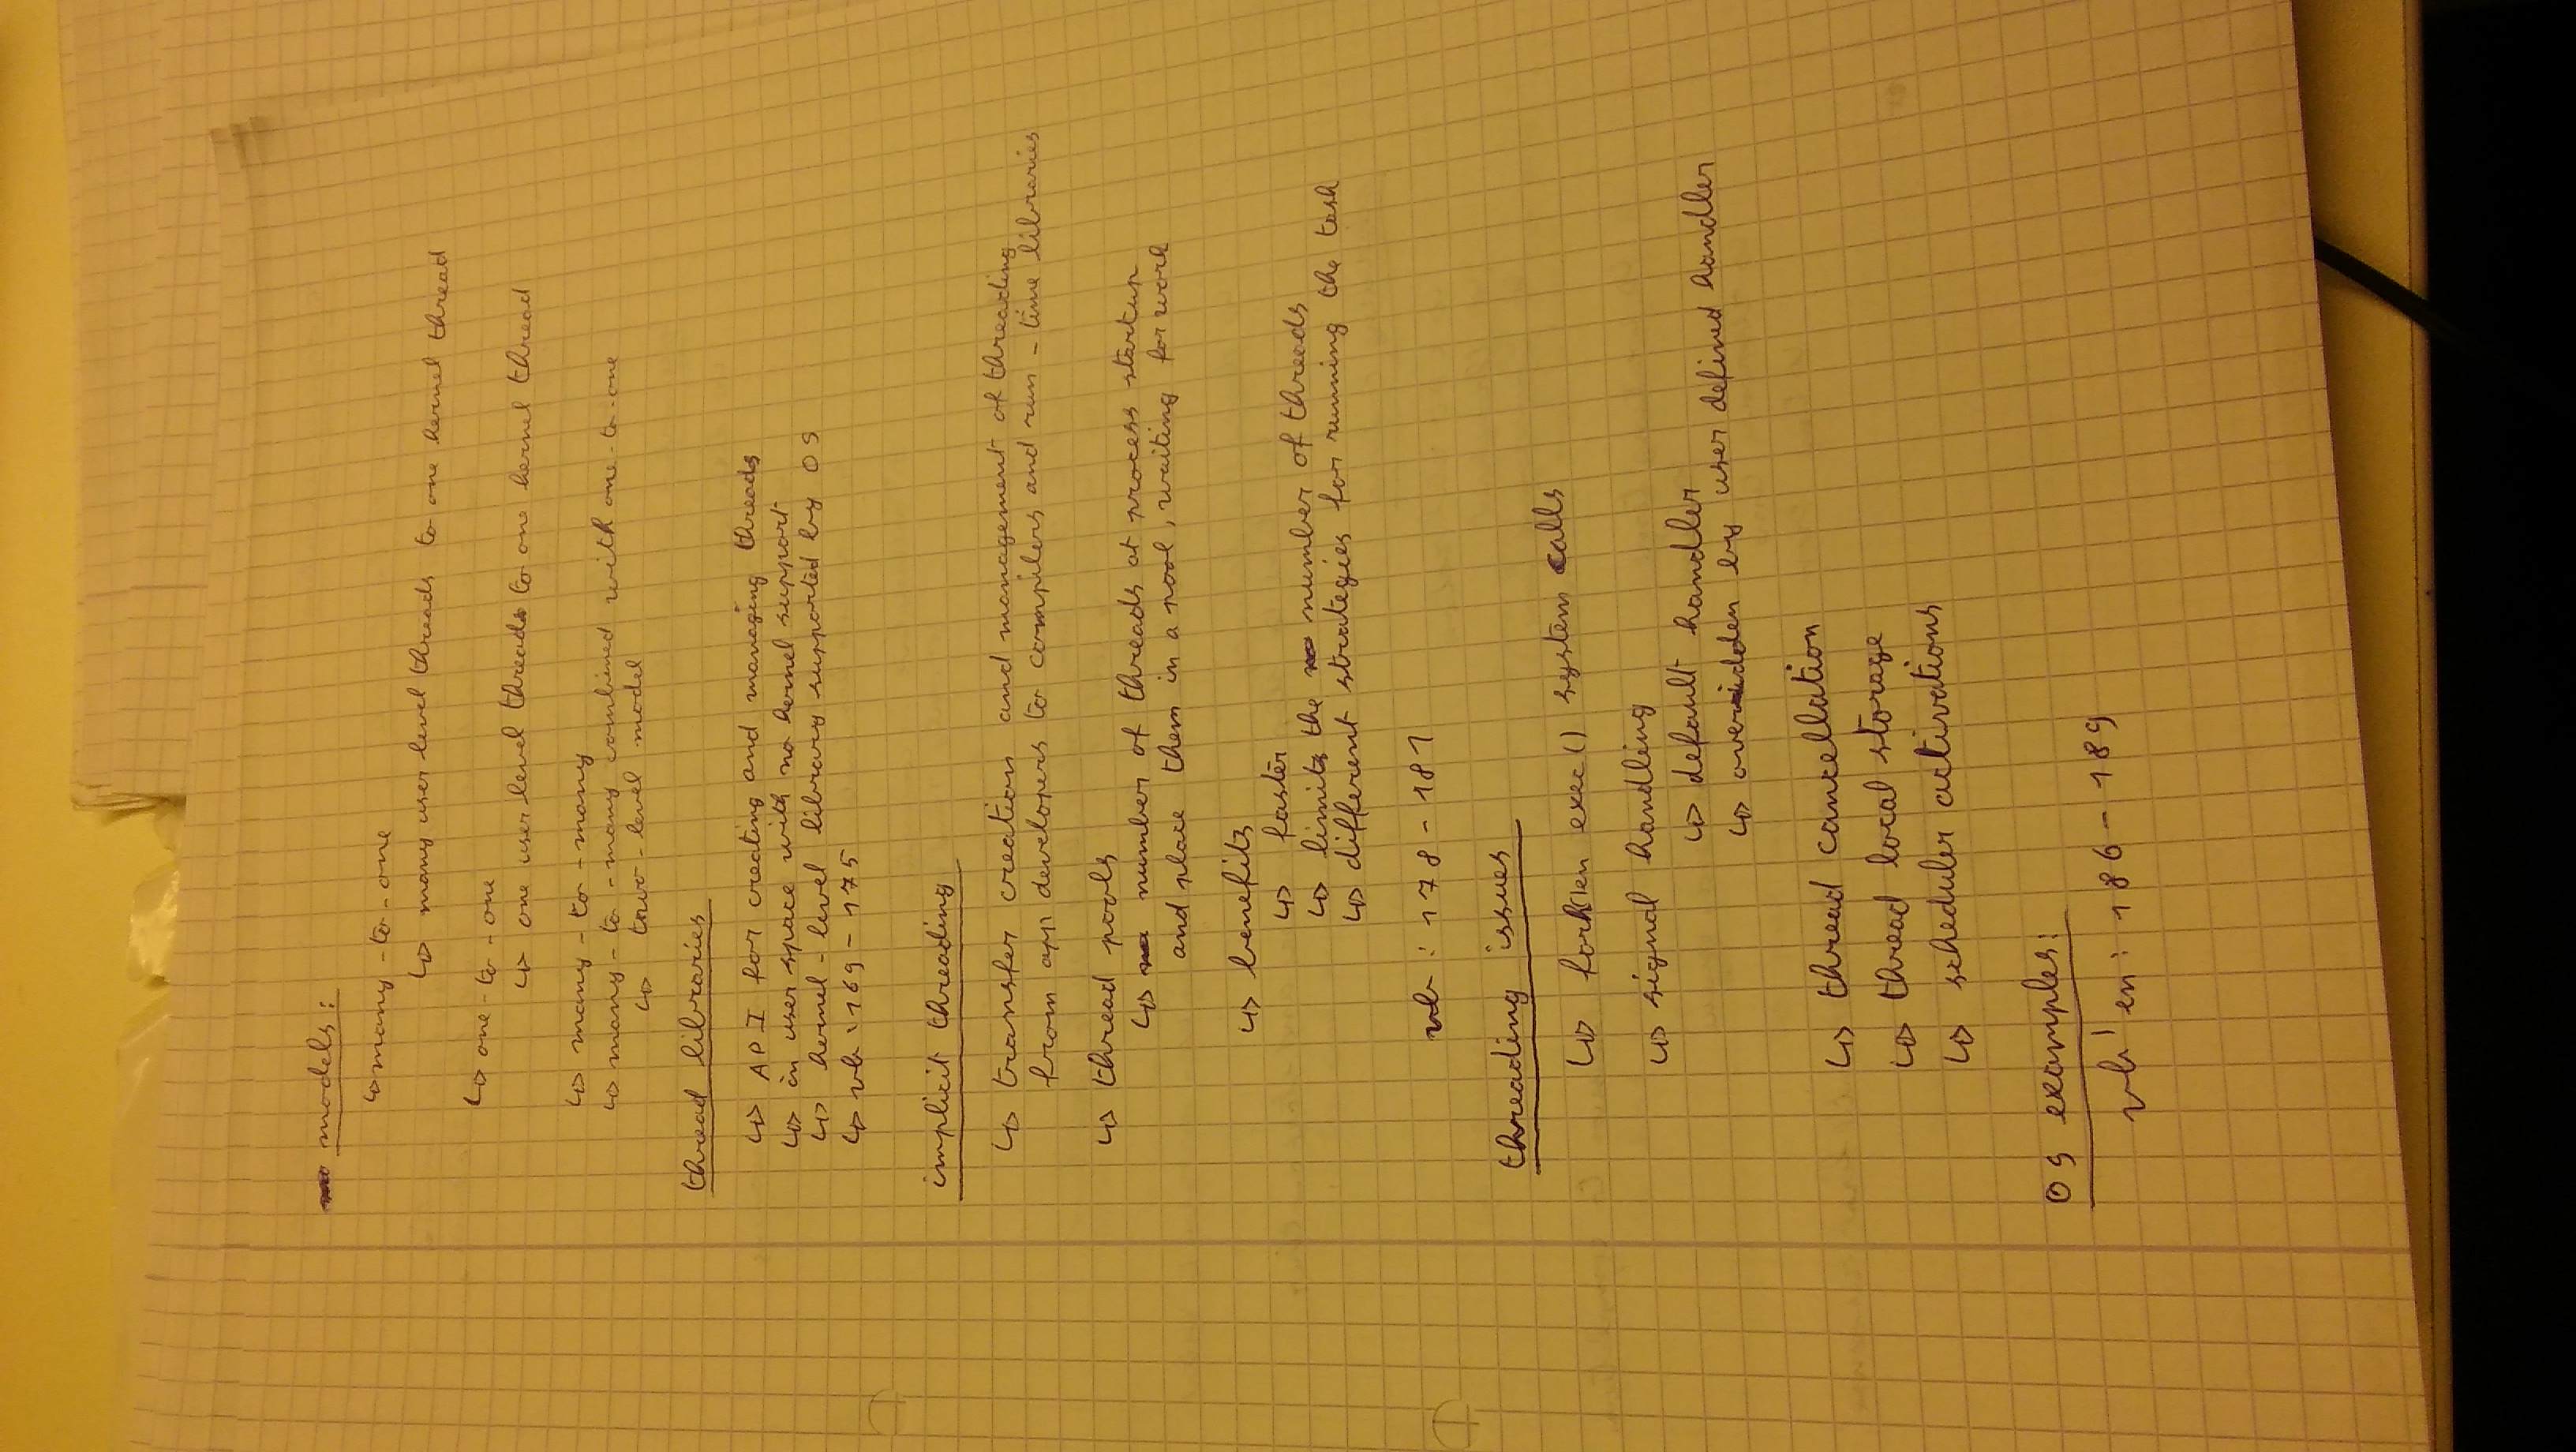 models:
↳ many-to-one
↳ many user level threads to one kernel thread
↳ one-to-one
↳ one user level threads to one kernel thread
↳ many-to-many
↳ many-to-many combined with one-to-one
↳ two-level model
thread libraries
↳ API for creating and managing threads
↳ in user space with no kernel support
↳ kernel-level library supported by OS
↳ vb: 169-175
implicit threading
↳ transfer creation and management of threading
from app developers to compilers and run-time libraries
↳ thread pools
↳ number of threads at process startup
and place them in a pool, waiting for work
↳ benefits
↳ faster
↳ limits the number of threads
↳ different strategies for running the task
vb: 178-181
threading issues
↳ fork() en exec() system calls
↳ signal handling
↳ default handler
↳ overridden by user defined handler
↳ thread cancellation
↳ thread local storage
↳ scheduler activations
OS examples:
vb'en: 186-189